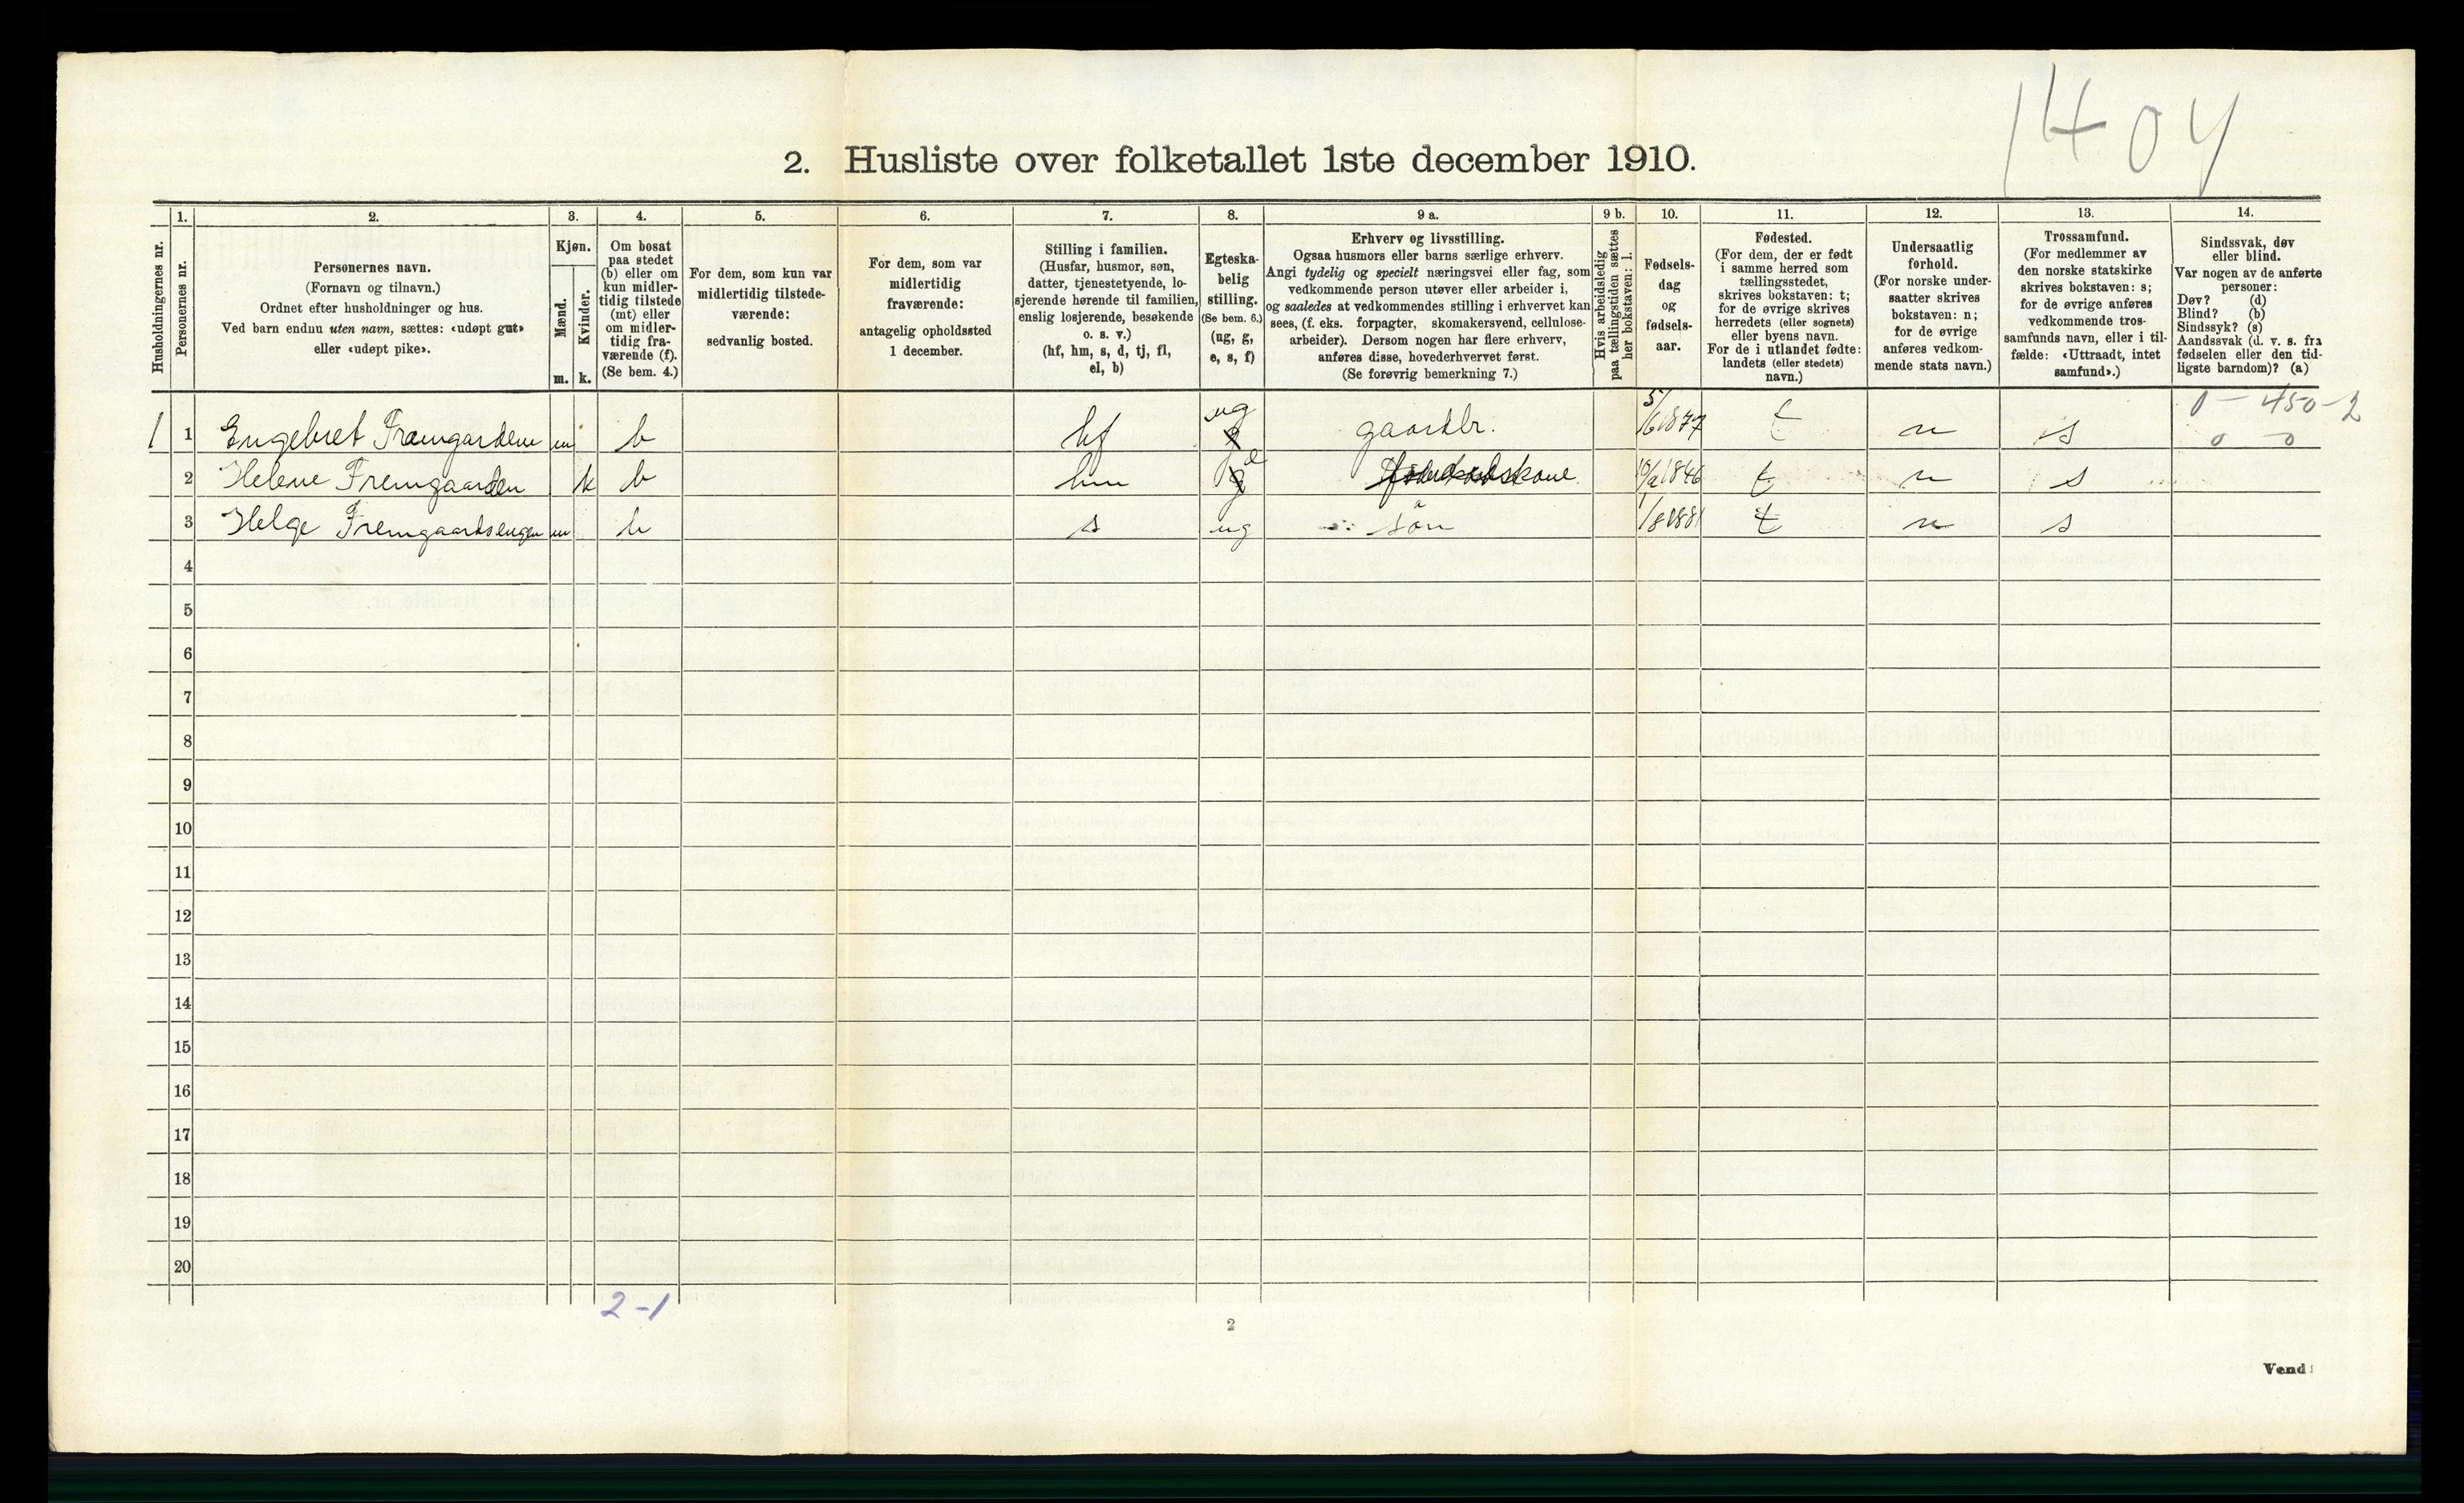 1404
2. Husliste over folketallet 1ste december 1910.
Husholdningernes nr.
1.
Personernes nr.
2.
Personernes navn.
(Fornavn og tilnavn.)
Ordnet efter husholdninger og hus.
Ved barn endnu uten navn, sættes: «udøpt gut»
eller «udøpt pike».
3.
Kjøn.
Mænd.
m.
Kvinder.
k.
4.
Om bosat
paa stedet
(b) eller om
kun midler-
tidig tilstede
(mt) eller
om midler-
tidig fra-
værende (f).
(Se bem. 4.)
5.
For dem, som kun var
midlertidig tilstede-
værende:
sedvanlig bosted.
6.
For dem, som var
midlertidig
fraværende:
antagelig opholdssted
1 december.
7.
Stilling i familien.
(Husfar, husmor, søn,
datter, tjenestetyende, lo-
sjerende hørende til familien,
enslig losjerende, besøkende
o. s. v.)
(hf, hm, s, d, tj, fl,
el, b)
8.
Egteska-
belig
stilling.
(Se bem. 6.)
(ug, g,
e, s, f)
9 a.
Erhverv og livsstilling.
Ogsaa husmors eller barns særlige erhverv.
Angi tydelig og specielt næringsvei eller fag, som
vedkommende person utøver eller arbeider i,
og saaledes at vedkommendes stilling i erhvervet kan
sees, (f. eks. forpagter, skomakersvend, cellulose-
arbeider). Dersom nogen har flere erhverv,
anføres disse, hovederhvervet først.
(Se forøvrig bemerkning 7.)
9 b.
Hvis arbeidsledig
paa tællingstiden sættes
her bokstaven: l.
10.
Fødsels-
dag
og
fødsels-
aar.
11.
Fødested.
(For dem, der er født
i samme herred som
tællingsstedet,
skrives bokstaven: t;
for de øvrige skrives
herredets (eller sognets)
eller byens navn.
For de i utlandet fødte:
landets (eller stedets)
navn.)
12.
Undersaatlig
forhold.
(For norske under-
saatter skrives
bokstaven: n;
for de øvrige
anføres vedkom-
mende stats navn.)
13.
Trossamfund.
(For medlemmer av
den norske statskirke
skrives bokstaven: s;
for de øvrige anføres
vedkommende tros-
samfunds navn, eller i til-
fælde: «Uttraadt, intet
samfund».)
14.
Sindssvak, døv
eller blind.
Var nogen av de anførte
personer:
Døv? (d)
Blind? (b)
Sindssyk? (s)
Aandssvak (d. v. s. fra
fødselen eller den tid-
ligste barndom)? (a)
0 - 450 - 2
1 1 Engebret Fremgarden m b hf ug g gaardbr. 5/6 1877 t n s 0 0
2 Helene Fremgaarden k b hm e g 1846 t n s
3 Helge Fremgaardsengen m b s ug søn 1/8 1881 t n s
4
5
6
7
8
9
10
11
12
13
14
15
16
17
18
19
20
2-1
2
Vend!